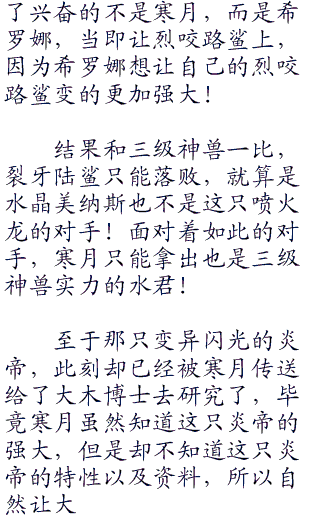 了兴奋的不是寒月，而是希
罗娜，当即让烈咬路鲨上，
因为希罗娜想让自己的烈咬
路鲨变的更加强大！
结果和三级神兽一比，
裂牙陆鲨只能落败，就算是
水晶美纳斯也不是这只喷火
龙的对手！面对着如此的对
手，寒月只能拿出也是三级
神兽实力的水君！
至于那只变异闪光的炎
帝，此刻却已经被寒月传送
给了大木博士去研究了，毕
竟寒月虽然知道这只炎帝的
强大，但是却不知道这只炎
帝的特性以及资料，所以自
然让大